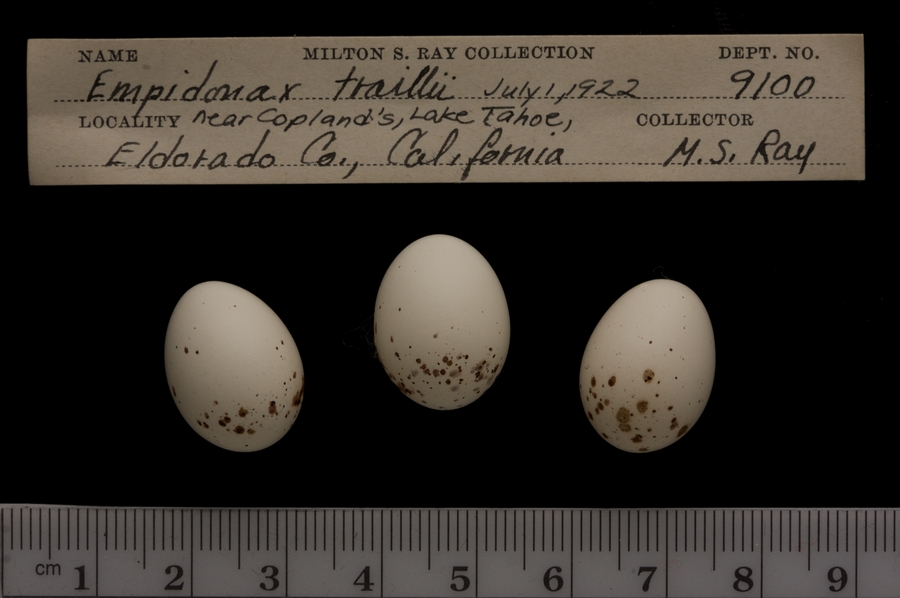 NAME MILTON S. RAY COLLECTION DEPT. NO.
Empidonax traillii July 1, 1922 9100
LOCALITY near Copland's, Lake Tahoe, COLLECTOR
Eldorado Co., California M. S. Ray
cm 1 2 3 4 5 6 7 8 9